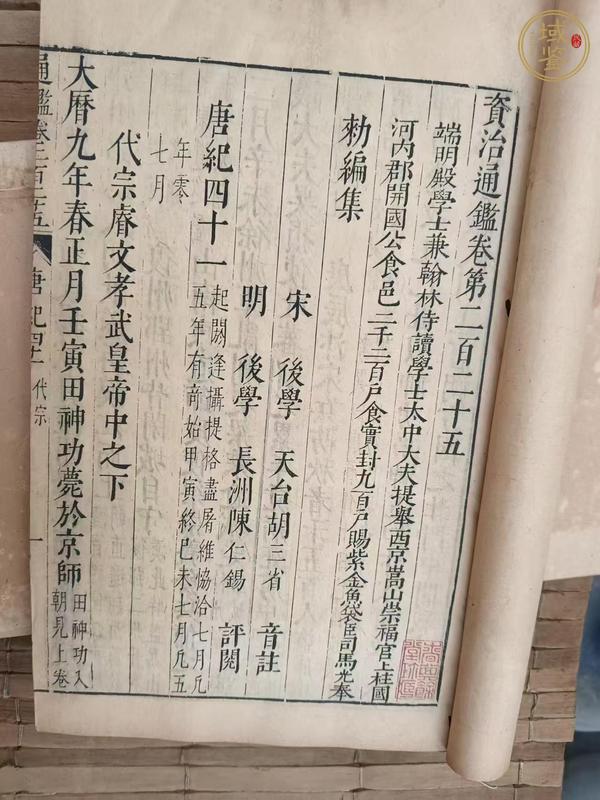 資治通鑑卷第二百二十五
端明殿學士兼翰林侍讀學士太中大夫提舉西京嵩山崇福宮上柱國
河內郡開國公食邑二千二百戶食實封九百戶賜紫金魚袋臣司馬光奉
勑編集
宋 後學 天台胡三省 音註
明 後學 長洲陳仁錫 評閱
唐紀四十一 起閼逢攝提格盡屠維協洽七月凡
五年有奇始甲寅終己未七月凡五
年零
七月
代宗睿文孝武皇帝中之下
大曆九年春正月壬寅田神功薨於京師 田神功入
朝見上卷
通鑑卷二百二十五 唐紀四十一 代宗 一
域鑒